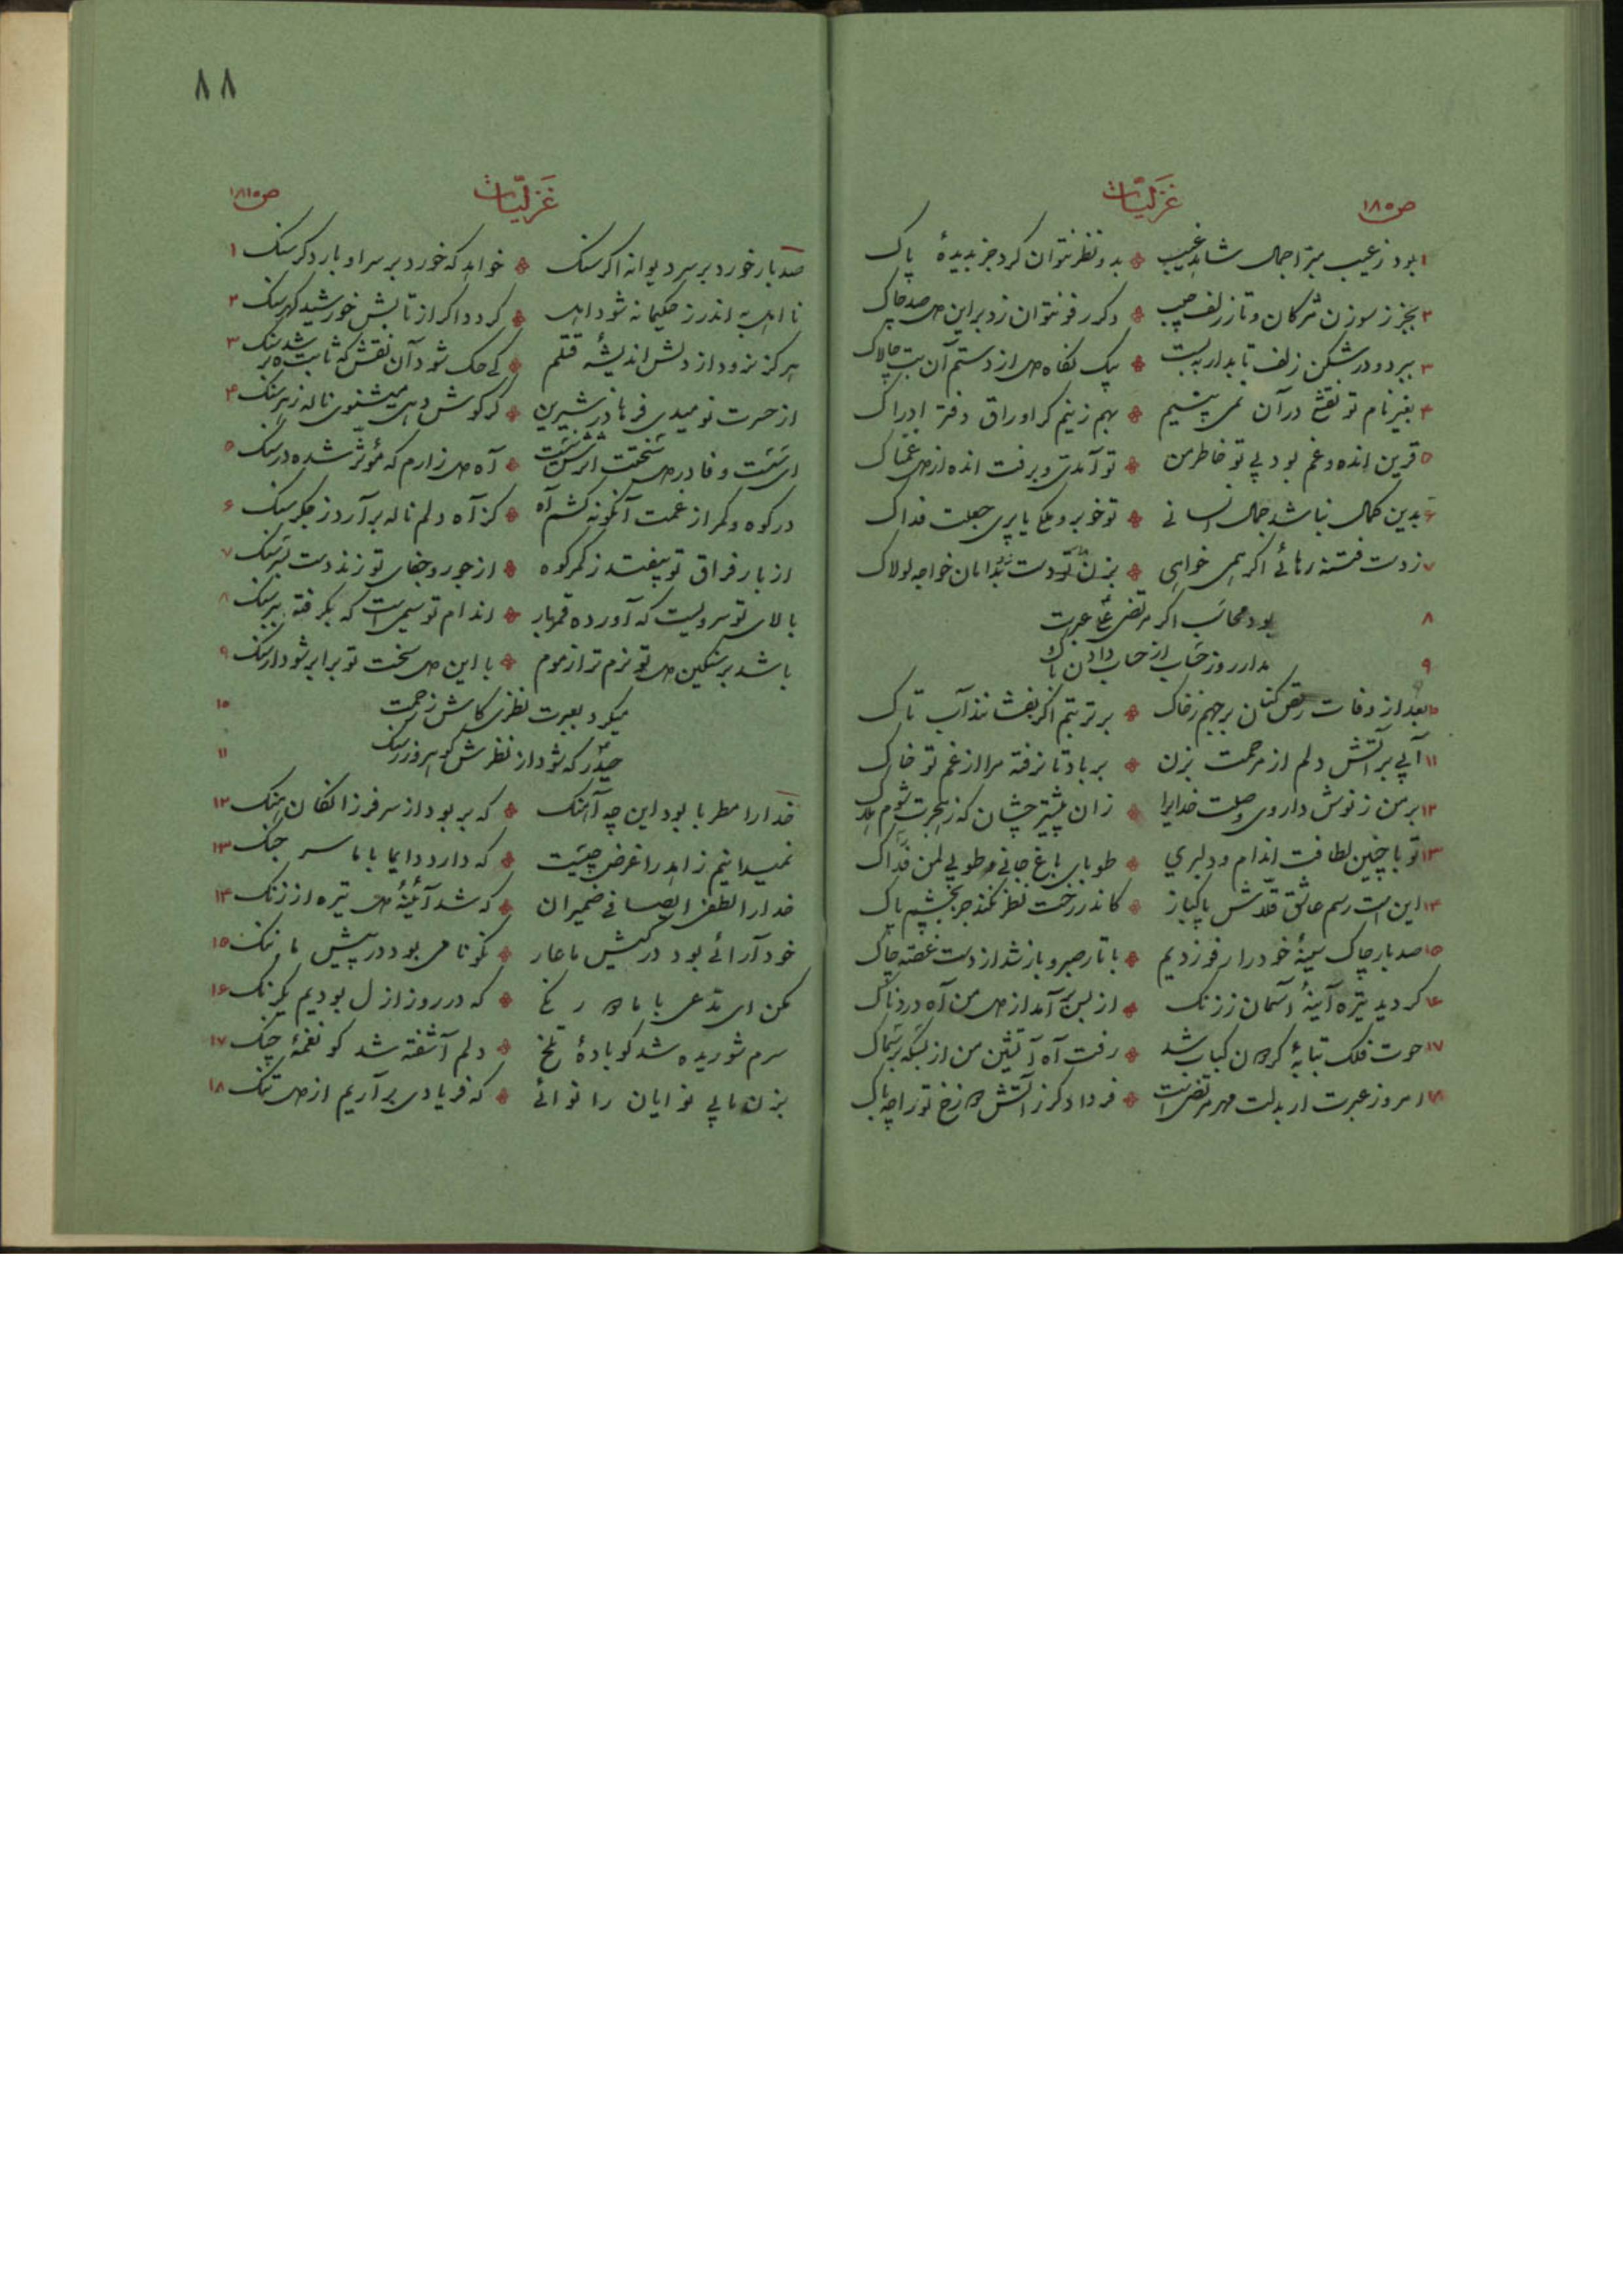 غزلیّات
ص۱۸۵
۱ بود ز عیب مبرّا جمال شاهد غیب ❀ بدو نظر نتوان کرد جز بدیدهٔ پاک
۲ بجز ز سوزن مژگان و تار زلف حبیب ❀ دگر رفو نتوان زد بر این دل صد چاک
۳ ببرد و در شکن زلف تابدار ببست ❀ بیک نگاه دل از دستم آن بت چالاک
۴ بغیر نام تو نقشی در آن نمی بینیم ❀ بهم زنیم گر اوراق دفتر ادراک
۵ قرین انده و غم بود بی تو خاطر من ❀ تو آمدی و برفت انده از دل غمناک
۶ بدین کمال نباشد جمال انسانی ❀ تو خوبرو ملکی یا پری جعلت فداک
۷ ز دست فتنه رهائی اگر همی خواهی ❀ بزن تو دست بدامان خواجه لولاک
۸ بود محاسب اگر مرتضی علی عبرت
۹ مدار روز حساب از حساب دادن باک
۱۰ بعد از وفات رقص کنان برجهم ز خاک ❀ بر تربتم اگر بفشانند آب تاک
۱۱ آبی بر آتش دلم از مرحمت بزن ❀ بر باد تا نرفته مرا از غم تو خاک
۱۲ بر من ز نوش داروی وصلت خدایرا ❀ زان پیشتر چشان که ز هجرت شوم هلاک
۱۳ تو با چنین لطافت اندام و دلبری ❀ طوبای باغ جانی و طوبی لمن فداک
۱۴ این است رسم عاشق قلاش پاکباز ❀ کاندر رخت نظر نکند جز بچشم پاک
۱۵ صد بار چاک سینهٔ خود را رفو زدیم ❀ با تار صبر و باز شد از دست غصه چاک
۱۶ گردید تیره آینهٔ آسمان ز زنگ ❀ از بس برآمد از دل من آه دردناک
۱۷ حوت فلک بتابهٔ گردون کباب شد ❀ رفت آه آتشین من از بسکه بر سماک
۱۸ امروز عبرت ار بدلت مهر مرتضی است ❀ فردا دگر ز آتش دوزخ تو را چه باک
۸۸
غزلیّات
ص۱۸۱۵
صد بار خورد بر سر دیوانه اگر سنگ ❀ خواهد که خورد بر سر او بار دگر سنگ ۱
نا اهل به اندرز حکیمانه شود اهل ❀ گردد اگر از تابش خورشید گهر سنگ ۲
هرگز نرود از دلش اندیشهٔ قلم ❀ کی حک شود آن نقش که ثابت شده بر سنگ ۳
از حسرت نومیدی فرهاد ز شیرین ❀ گر گوش دهی میشنوی ناله ز هر سنگ ۴
ای سست وفا در دل سختت اثرش نیست ❀ آه دل زارم که مؤثر شده در سنگ ۵
در کوه و کمر از غمت آنگونه کشم آه ❀ کز آه دلم ناله برآرد ز جگر سنگ ۶
از بار فراق تو بیفتد ز کمر کوه ❀ از جور و جفای تو زند دست بسر سنگ ۷
بالای تو سرویست که آورده قمر بار ❀ اندام تو سیمی است که بگرفته ببر سنگ ۸
باشد بر سنگین دل تو نرم تر از موم ❀ با این دل سخت تو برابر شود ار سنگ ۹
میکرد بعبرت نظری کاش ز رحمت ۱۰
حیدر که شود از نظرش گوهر و زر سنگ ۱۱
خدا را مطربا بود این چه آهنگ ❀ که بربود از سر فرزانگان هنگ ۱۲
نمیدانیم زاهد را غرض چیست ❀ که دارد دایما با ما سر جنگ ۱۳
خدا را لطفی ای صافی ضمیران ❀ که شد آئینهٔ دل تیره از زنگ ۱۴
خود آرائی بود در کیش ما عار ❀ نکونامی بود در پیش ما ننگ ۱۵
مکن ای مدعی با ما دو رنگی ❀ که در روز ازل بودیم یکرنگ ۱۶
سرم شوریده شد کو بادهٔ تلخ ❀ دلم آشفته شد کو نغمهٔ چنگ ۱۷
بزن نایی نوایان را نوائی ❀ که فریادی برآریم از دل تنگ ۱۸